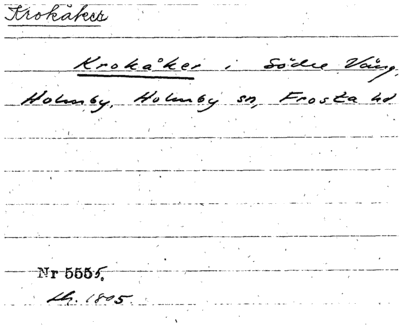 Krokåker
Krokåker i Södre Vång,
Holmby, Holmby sn, Frosta hd
Nr 5555.
Lh. 1805.